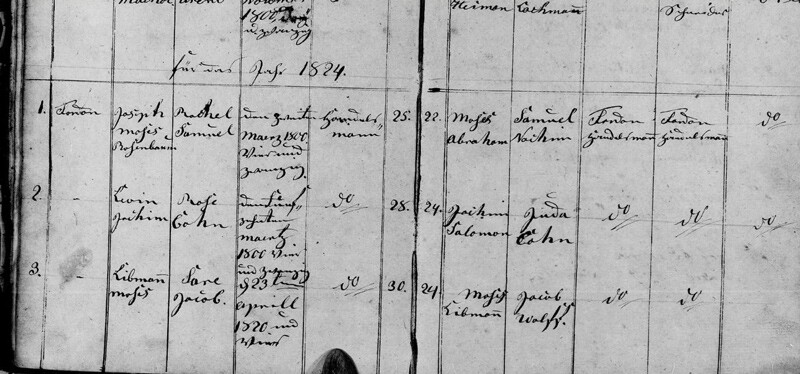 1800
Heiman Lachmann
Schneider
für das Jahr 1824.
1. Joseph Moses Rosenbaum
Rachel Samuel
den zweiten Maerz 1800 Vier und zwanzig
Handelsmann
25. 22.
Moses Abraham
Samuel Joihim
Handelsmann
Handelsmann
do
2. Levin Joihim
Rose Cohn
den fünfzehnten Maertz 1800 Vier und zwanzig
do
28. 24.
Joihim Salomon
Juda Cohn
do
do
do
3. Libmann Moses
Sare Jacob.
d 23 ten Aprill 1820 und Vier
do
30. 24.
Moses Libmann
Jacob Wolff.
do
do